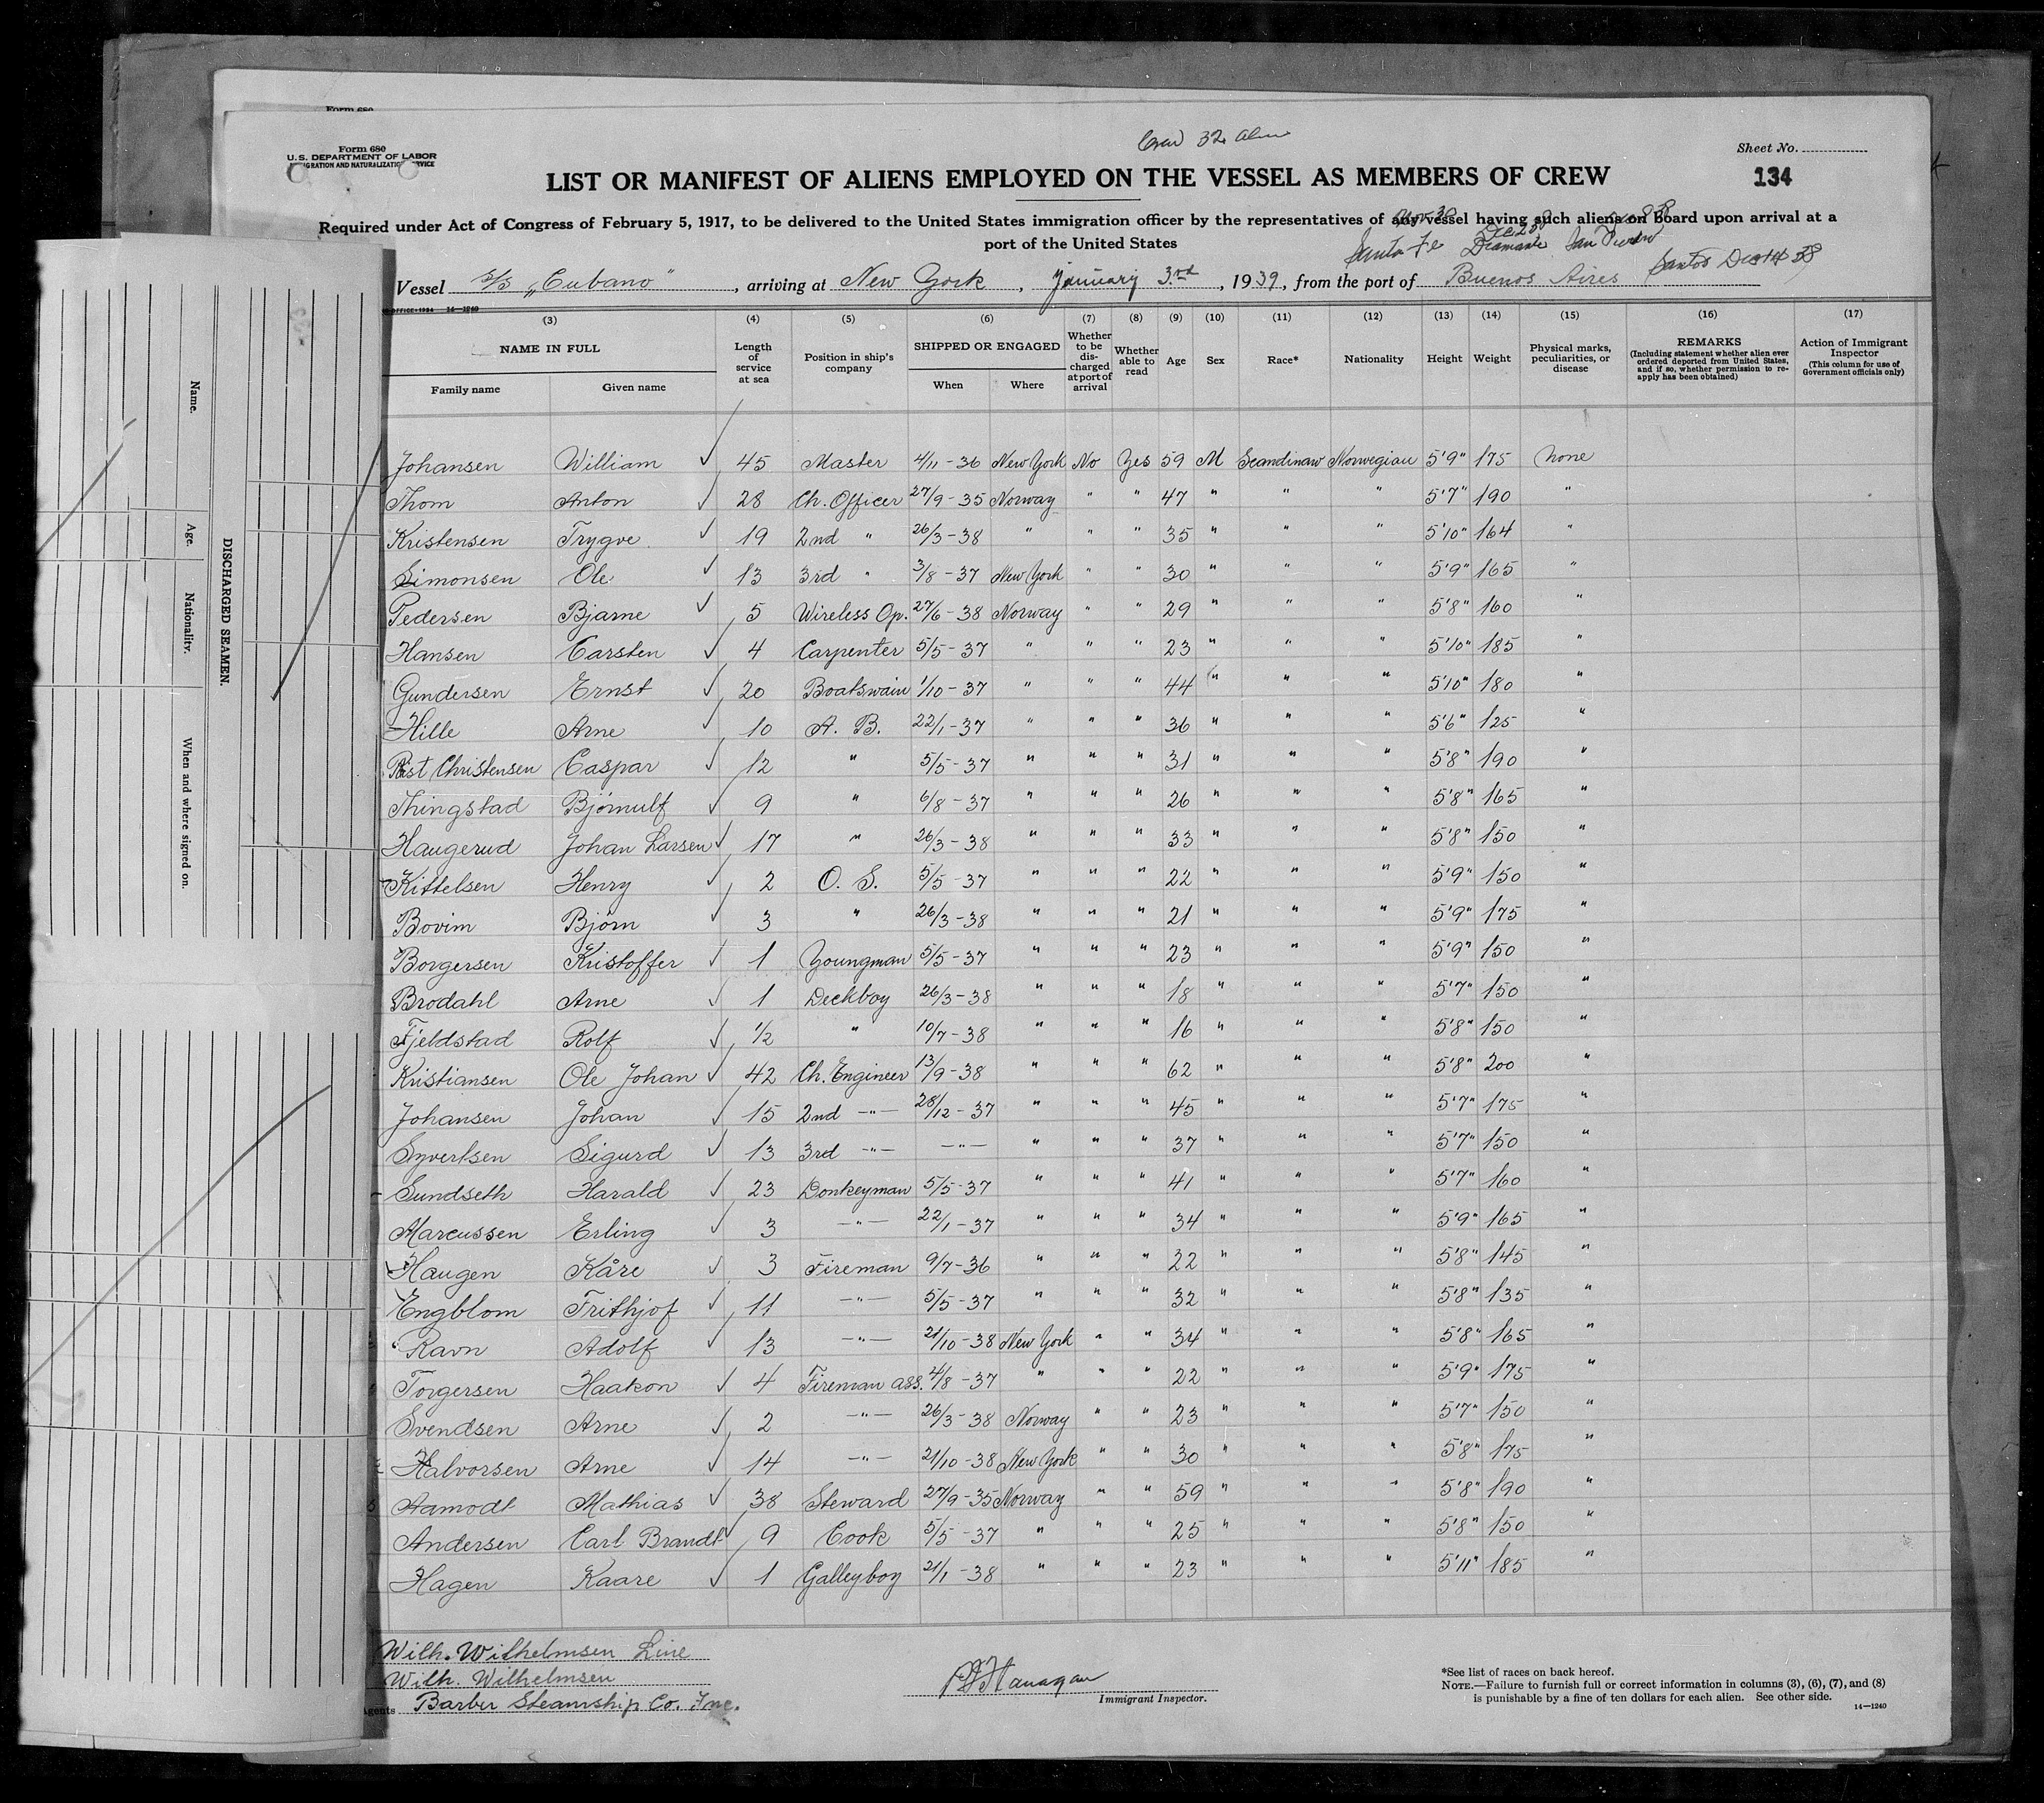 Form 680
Form 680
U.S. DEPARTMENT OF LABOR
IMMIGRATION AND NATURALIZATION SERVICE
Crew 32 alien
Sheet No.
134
LIST OR MANIFEST OF ALIENS EMPLOYED ON THE VESSEL AS MEMBERS OF CREW
Required under Act of Congress of February 5, 1917, to be delivered to the United States immigration officer by the representatives of any vessel having such aliens on board upon arrival at a
port of the United States
Santa Fe Diamante San Pedro
Vessel S/S „Cubano", arriving at New York, January 3rd, 1939, from the port of Buenos Aires Santos Dec 14 38
14—1240
(3) (4) (5) (6) (7) (8) (9) (10) (11) (12) (13) (14) (15) (16) (17)
NAME IN FULL Family name Given name Length of service at sea Position in ship's company SHIPPED OR ENGAGED When Where Whether to be discharged at port of arrival Whether able to read Age Sex Race* Nationality Height Weight Physical marks, peculiarities, or disease REMARKS (Including statement whether alien ever ordered deported from United States, and if so, whether permission to reapply has been obtained) Action of Immigrant Inspector (This column for use of Government officials only)
Johansen William 45 Master 4/11-36 New York No Yes 59 M Scandinaw Norwegian 5'9" 175 None
Thom Anton 28 Ch. Officer 27/9-35 Norway " " 47 " " " 5'7" 190 "
Kristensen Trygve 19 2nd " 26/3-38 " " " 35 " " " 5'10" 164 "
Simonsen Ole 13 3rd " 3/8-37 New York " " 30 " " " 5'9" 165 "
Pedersen Bjarne 5 Wireless Op. 27/6-38 Norway " " 29 " " " 5'8" 160 "
Hansen Carsten 4 Carpenter 5/5-37 " " " 23 " " " 5'10" 185 "
Gundersen Ernst 20 Boatswain 1/10-37 " " " 44 " " " 5'10" 180 "
Hille Arne 10 A. B. 22/1-37 " " " 36 " " " 5'6" 125 "
Rist Christensen Caspar 12 " 5/5-37 " " " 31 " " " 5'8" 190 "
Thingstad Bjørnulf 9 " 6/8-37 " " " 26 " " " 5'8" 165 "
Haugerud Johan Larsen 17 " 26/3-38 " " " 33 " " " 5'8" 150 "
Kittelsen Henry 2 O. S. 5/5-37 " " " 22 " " " 5'9" 150 "
Bovim Bjørn 3 " 26/3-38 " " " 21 " " " 5'9" 175 "
Borgersen Kristoffer 1 Youngman 5/5-37 " " " 23 " " " 5'9" 150 "
Brodahl Arne 1 Deckboy 26/3-38 " " " 18 " " " 5'7" 150 "
Fjeldstad Rolf 1/2 " 10/7-38 " " " 16 " " " 5'8" 150 "
Kristiansen Ole Johan 42 Ch. Engineer 13/9-38 " " " 62 " " " 5'8" 200 "
Johansen Johan 15 2nd -"- 28/12-37 " " " 45 " " " 5'7" 175 "
Syvertsen Sigurd 13 3rd -"- -"- " " " 37 " " " 5'7" 150 "
Sundseth Harald 23 Donkeyman 5/5-37 " " " 41 " " " 5'7" 160 "
Marcussen Erling 3 -"- 22/1-37 " " " 34 " " " 5'9" 165 "
Haugen Kåre 3 Fireman 9/7-36 " " " 22 " " " 5'8" 145 "
Engblom Frithjof 11 -"- 5/5-37 " " " 32 " " " 5'8" 135 "
Ravn Adolf 13 -"- 21/10-38 New York " " 34 " " " 5'8" 165 "
Torgersen Haakon 4 Fireman ass. 4/8-37 " " " 22 " " " 5'9" 175 "
Svendsen Arne 2 -"- 26/3-38 Norway " " 23 " " " 5'7" 150 "
Halvorsen Arne 14 -"- 21/10-38 New York " " 30 " " " 5'8" 175 "
Aamodt Mathias 38 Steward 27/9-35 Norway " " 59 " " " 5'8" 190 "
Andersen Carl Brandt 9 Cook 5/5-37 " " " 25 " " " 5'8" 150 "
Hagen Kaare 1 Galleyboy 21/1-38 " " " 23 " " " 5'11" 185 "
Wilh. Wilhelmsen Line
Wilh. Wilhelmsen
Agents Barber Steamship Co. Inc.
Immigrant Inspector.
*See list of races on back hereof.
NOTE.—Failure to furnish full or correct information in columns (3), (6), (7), and (8)
is punishable by a fine of ten dollars for each alien. See other side.
14—1240
DISCHARGED SEAMEN.
Name.
Age.
Nationality.
When and where signed on.